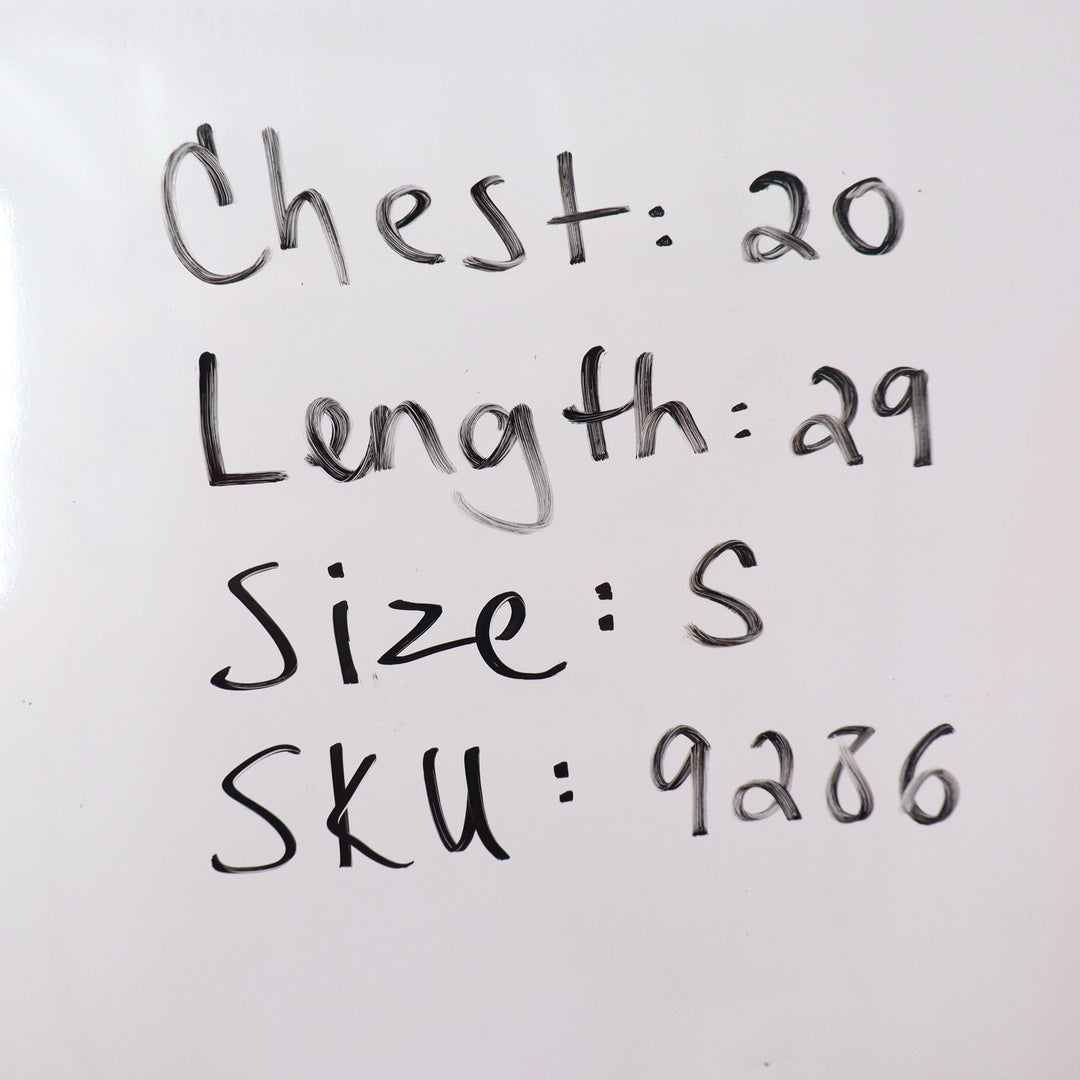 Chest: 20
Length: 29
Size: S
SKU: 9286